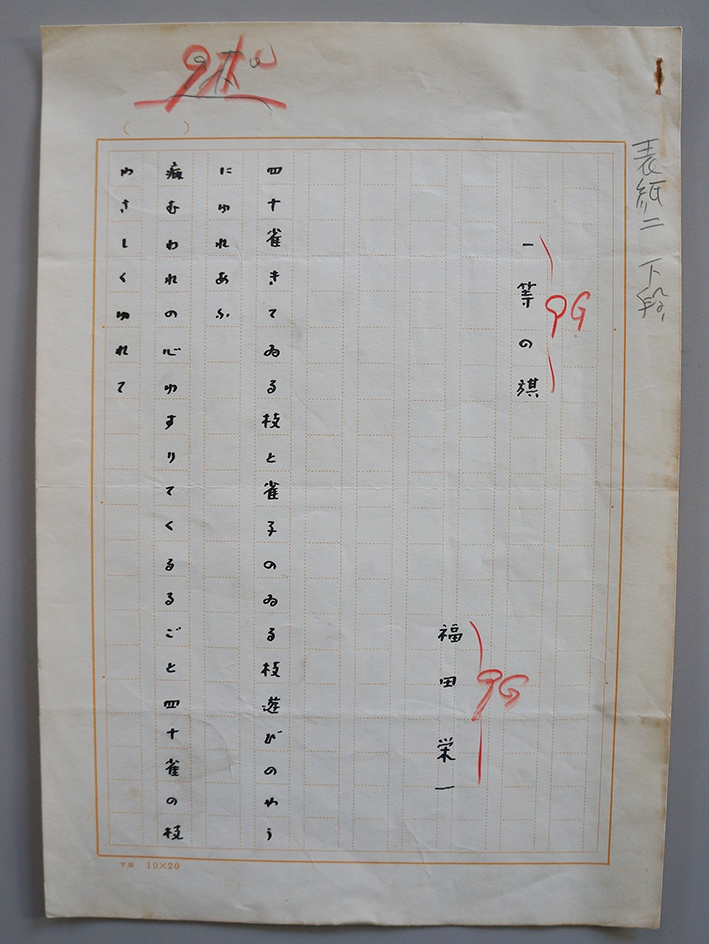 9ポ
( )
表紙二 下段
一等の旗
9G
福田栄一
9G
四十雀きてゐる枝と雀子のゐる枝遊びのやう
にゆれあふ
病むわれの心ゆすりてくるるごと四十雀の枝
やさしくゆれて
10×20